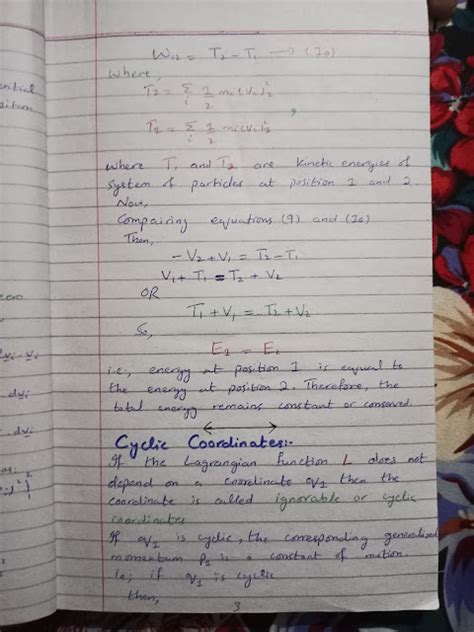 W₁₂ = T₂ - T₁ ⟶ (10)
where,
T₂ = Σᵢ 1/2 mᵢ(Vᵢ)₂²,
T₁ = Σᵢ 1/2 mᵢ(Vᵢ)₁²
where T₁ and T₂ are kinetic energies of
system of particles at position 1 and 2.
Now,
Comparing equations (9) and (10)
Then,
-V₂ + V₁ = T₂ - T₁
V₁ + T₁ = T₂ + V₂
OR
T₁ + V₁ = T₂ + V₂
So,
i.e; energy at position 1 is equal to
the energy at position 2. Therefore, the
total energy remains constant or conserved.
Cyclic Coordinates:-
If the Lagrangian function L does not
depend on a coordinate q₁ then the
coordinate is called ignorable or cyclic
coordinates
If q₁ is cyclic, the corresponding generalized
momentum P₁ is a constant of motion.
ie; if q₁ is cyclic
then,
3